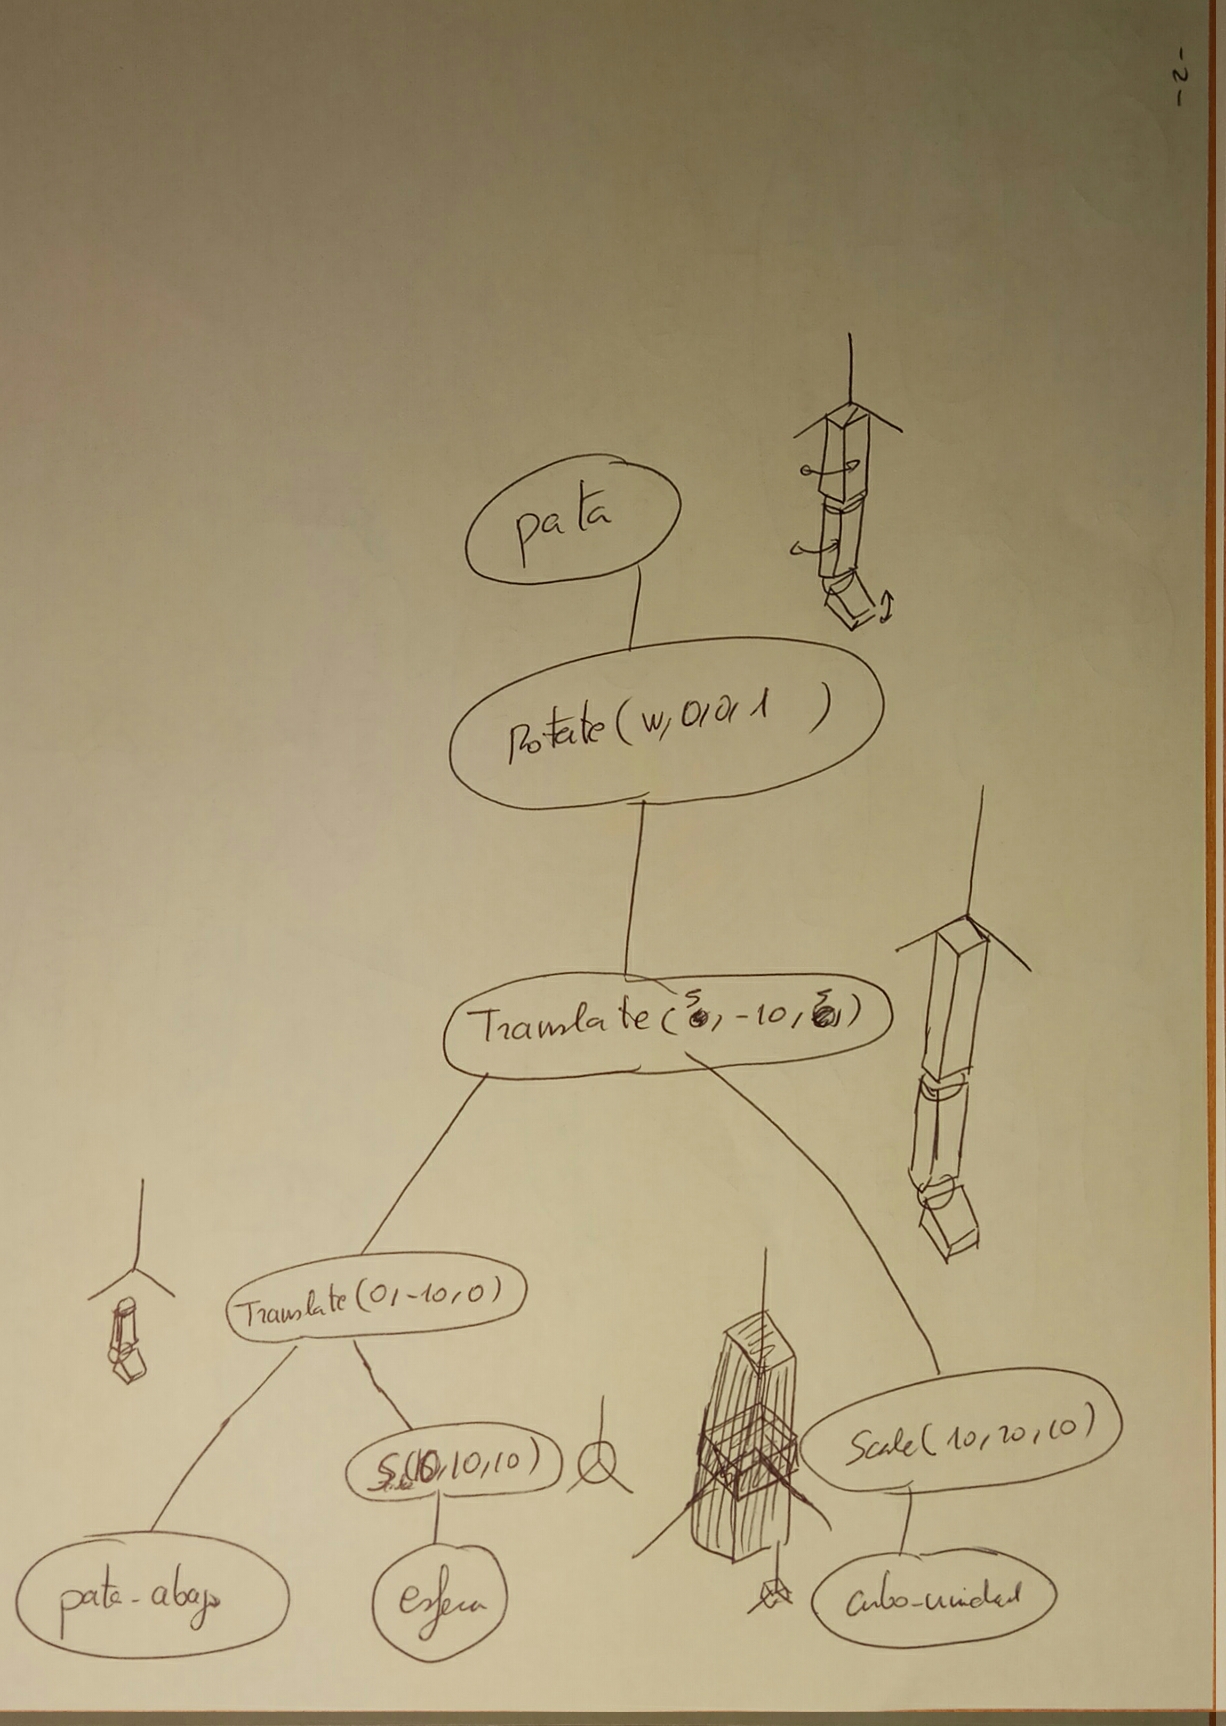 -2-
pata
Rotate(w,0,0,1 )
Translate(5, -10, 5)
Translate(0,-10,0)
Scale(10,20,10)
S(10,10,10)
pata-abajo
esfera
cubo-unidad